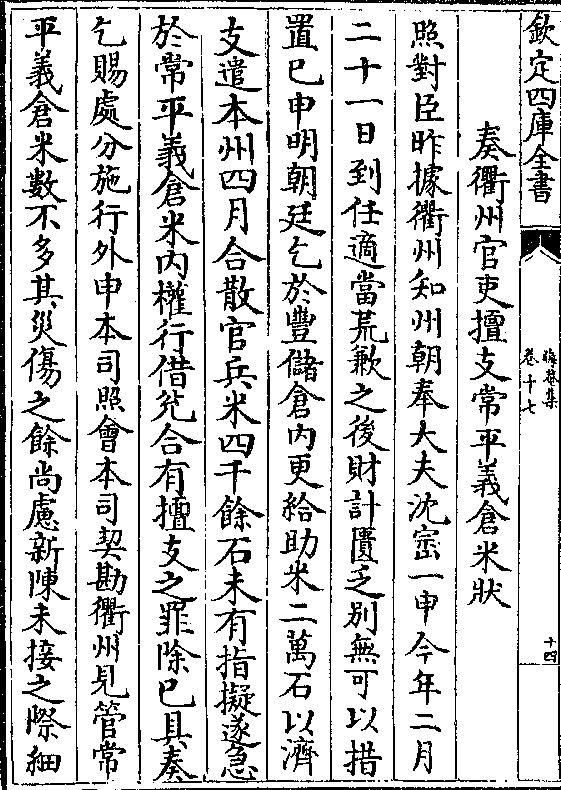 欽定四庫全書
晦菴集
卷十七
十四
奏衢州官吏擅支常平義倉米狀
照對臣昨據衢州知州朝奉大夫沈崈一申今年二月
二十一日到任適當荒歉之後財計匱乏別無可以措
置已申明朝廷乞於豐儲倉內更給助米二萬石以濟
支遣本州四月合散官兵米四千餘石未有指擬遂急
於常平義倉米內權行借兊合有擅支之罪除已具奏
乞賜處分施行外申本司照會本司契勘衢州見管常
平義倉米數不多其災傷之餘尚慮新陳未接之際細